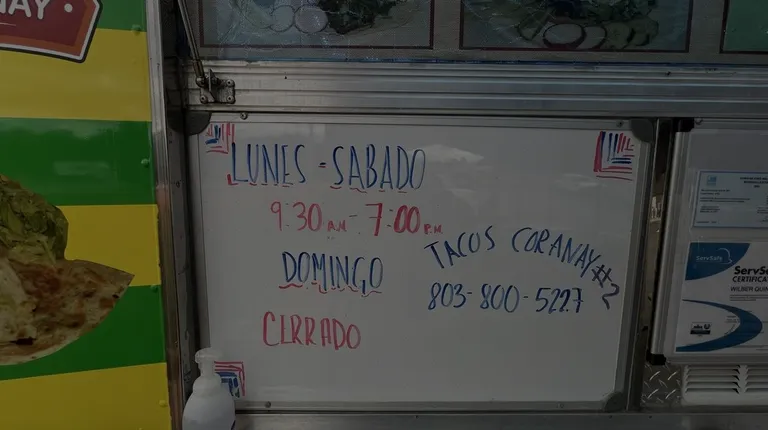 NAY
LUNES - SABADO
9:30 A.M - 7:00 P.M.
DOMINGO
CERRADO
TACOS CORANAY #2
803-800-5227
ServSafe
ServSafe
CERTIFICA
WILBER QUIN